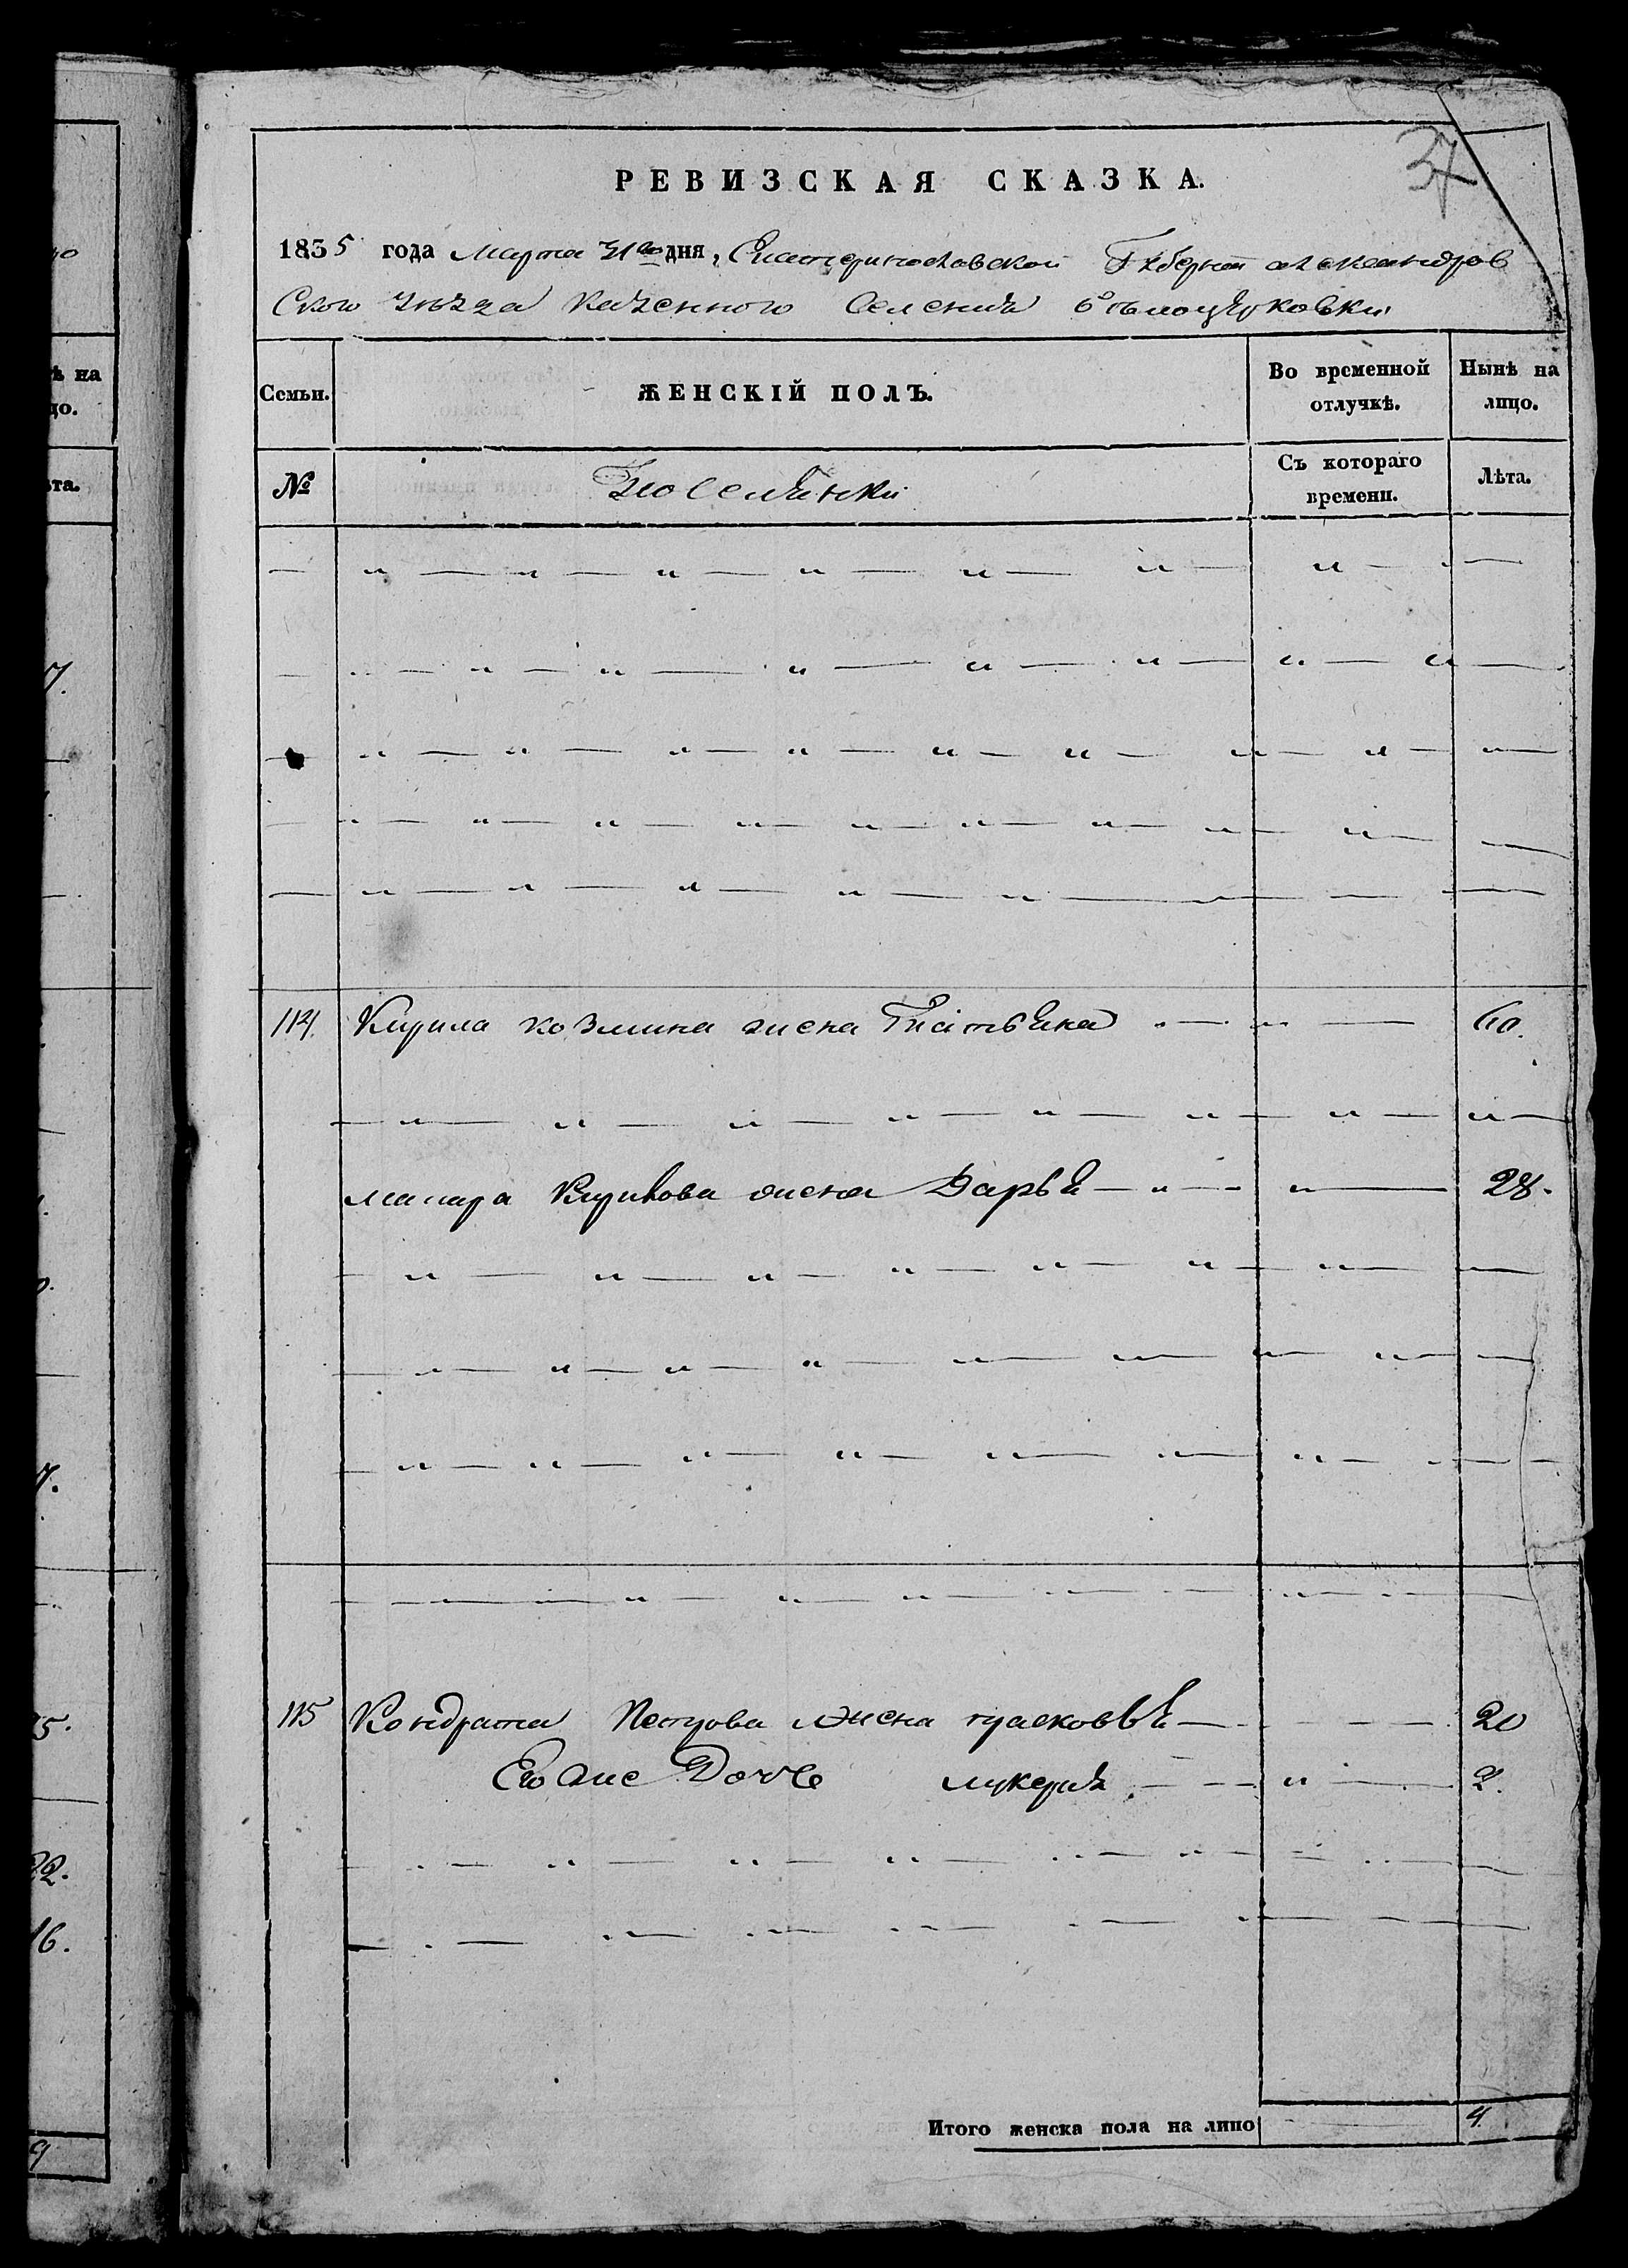 37
РЕВИЗСКАЯ СКАЗКА.
1835 года Марта 31го дня, Екатеринославской Губернии александров
Скаго уезда Казенного Селения белоцерковки
Семьи.
ЖЕНСКІЙ ПОЛЪ.
Во временной отлучкѣ.
Нынѣ на лицо.
№
Поселянки
Съ котораго времени.
Лѣта.
114. Кирила козмина жена 60.
макара Кирилова жена Дарья 28.
115 Кондрата Петрова жена 20
Его же Дочь лукерия 2.
Итого женска пола на лицо 4
ѣ на
цо.
та.
7.
7.
5.
22.
16.
9